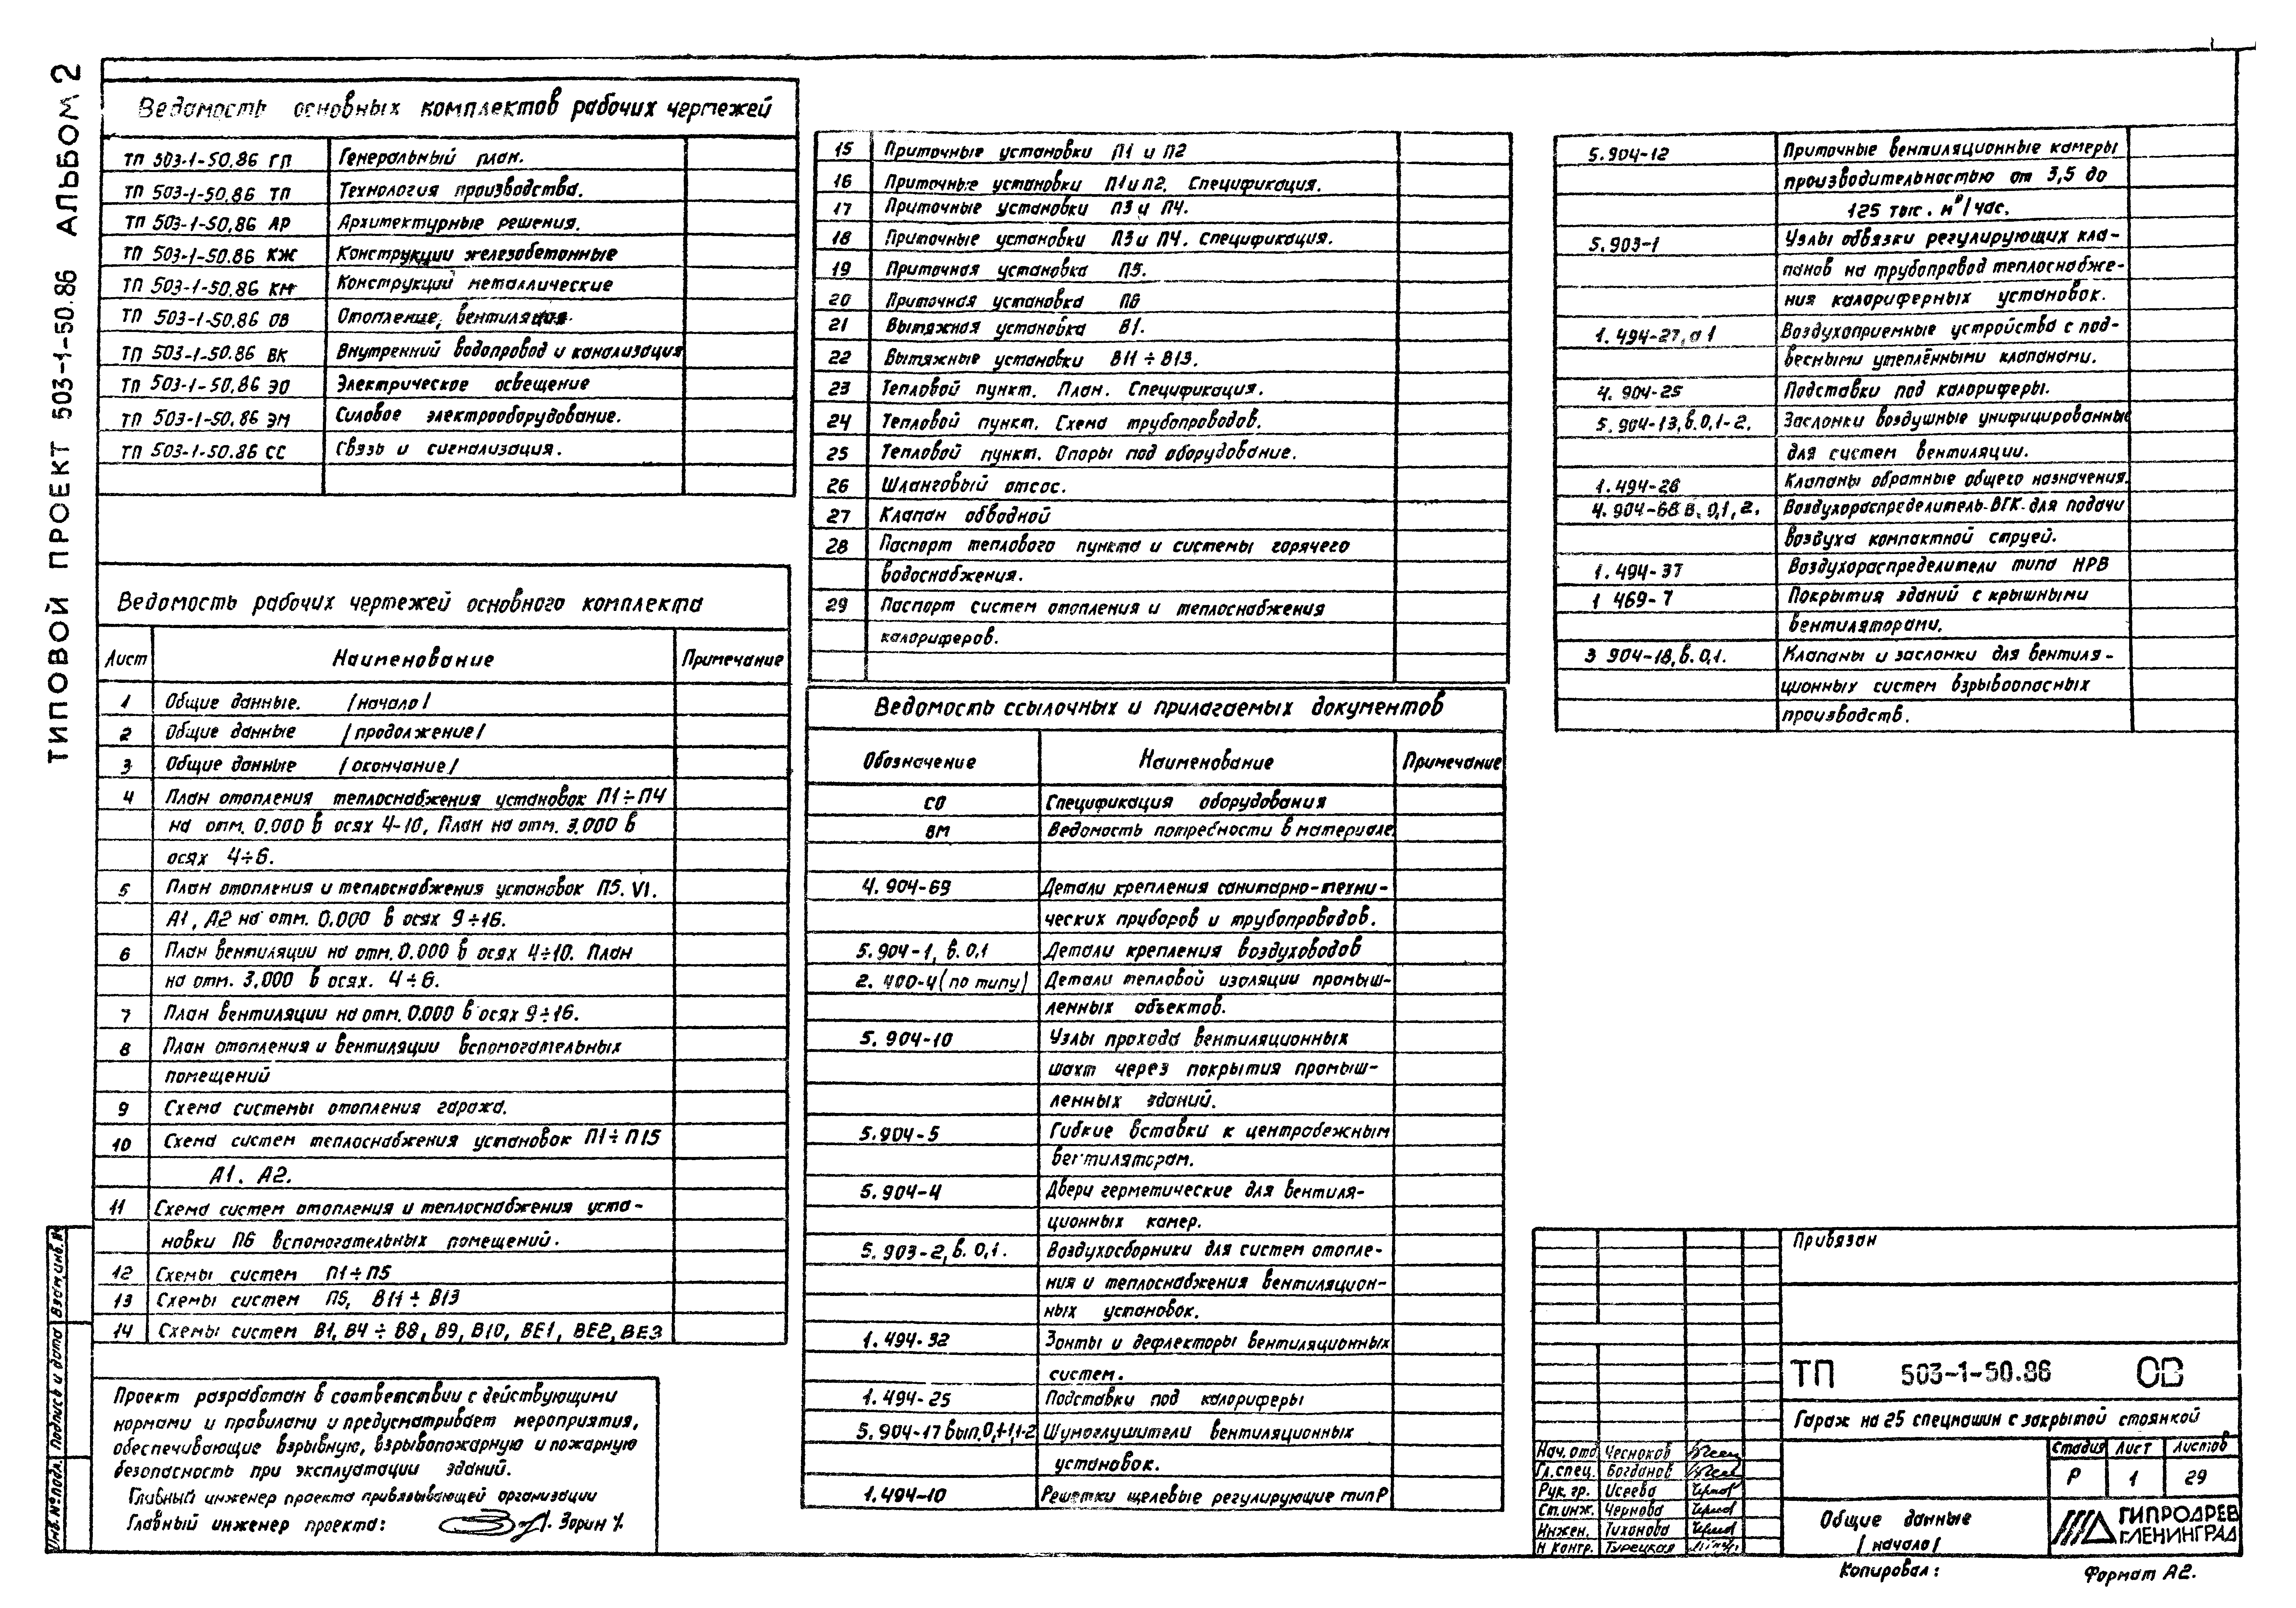 ТИПОВОЙ ПРОЕКТ 503-1-50.86 АЛЬБОМ 2
Ведомость основных комплектов рабочих чертежей
ТП 503-1-50.86 ГП Генеральный план.
ТП 503-1-50.86 ТП Технология производства.
ТП 503-1-50.86 АР Архитектурные решения.
ТП 503-1-50.86 КЖ Конструкции железобетонные
ТП 503-1-50.86 КМ Конструкций металлические
ТП 503-1-50.86 ОВ Отопление, вентиляция.
ТП 503-1-50.86 ВК Внутренний водопровод и канализация
ТП 503-1-50.86 ЭО Электрическое освещение
ТП 503-1-50.86 ЭМ Силовое электрооборудование.
ТП 503-1-50.86 СС Связь и сигнализация.
Ведомость рабочих чертежей основного комплекта
Лист Наименование Примечание
1 Общие данные. /начало/
2 Общие данные /продолжение/
3 Общие данные /окончание/
4 План отопления теплоснабжения установок П1÷П4
на отм. 0.000 в осях 4-10, План на отм. 3.000 в
осях 4÷6.
5 План отопления и теплоснабжения установок П5. VI.
А1, А2 на отм. 0.000 в осях 9÷16.
6 План вентиляции на отм. 0.000 в осях 4÷10. План
на отм. 3,000 в осях. 4÷6.
7 План вентиляции на отм. 0.000 в осях 9÷16.
8 План отопления и вентиляции вспомогательных
помещений
9 Схема системы отопления гаража.
10 Схема систем теплоснабжения установок П1÷П15
А1. А2.
11 Схема систем отопления и теплоснабжения уста-
новки П6 вспомогательных помещений.
12 Схемы систем П1÷П5
13 Схемы систем П5, В11÷В13
14 Схемы систем В1, В4÷В8, В9, В10, ВЕ1, ВЕ2, ВЕ3
Проект разработан в соответствии с действующими
нормами и правилами и предусматривает мероприятия,
обеспечивающие взрывную, взрывопожарную и пожарную
безопасность при эксплуатации зданий.
Главный инженер проекта привязывающей организации
Главный инженер проекта: Зорин
15 Приточные установки П1 и П2
16 Приточные установки П1 и П2. Спецификация.
17 Приточные установки П3 и П4.
18 Приточные установки П3 и П4. Спецификация.
19 Приточная установка П5.
20 Приточная установка П6
21 Вытяжная установка В1.
22 Вытяжные установки В11÷В13.
23 Тепловой пункт. План. Спецификация.
24 Тепловой пункт. Схема трубопроводов.
25 Тепловой пункт. Опоры под оборудование.
26 Шланговый отсос.
27 Клапан обводной
28 Паспорт теплового пункта и системы горячего
водоснабжения.
29 Паспорт систем отопления и теплоснабжения
калориферов.
Ведомость ссылочных и прилагаемых документов
Обозначение Наименование Примечание
СО Спецификация оборудования
ВМ Ведомость потребности в материале
4. 904-69 Детали крепления санитарно-техни-
ческих приборов и трубопроводов.
5.904-1, в. 0.1 Детали крепления воздуховодов
2. 400-4 (по типу) Детали тепловой изоляции промыш-
ленных объектов.
5. 904-10 Узлы прохода вентиляционных
шахт через покрытия промыш-
ленных зданий.
5.904-5 Гибкие вставки к центробежным
вентиляторам.
5.904-4 Двери герметические для вентиля-
ционных камер.
5.903-2, в. 0,1. Воздухосборники для систем отопле-
ния и теплоснабжения вентиляцион-
ных установок.
1.494-32 Зонты и дефлекторы вентиляционных
систем.
1.494-25 Подставки под калориферы
5.904-17 вып.0,1-1,1-2 Шумоглушители вентиляционных
установок.
1.494-10 Решетки щелевые регулирующие тип Р
5.904-12 Приточные вентиляционные камеры
производительностью от 3,5 до
125 тыс. м³/час.
5.903-1 Узлы обвязки регулирующих кла-
панов на трубопровод теплоснабже-
ния калориферных установок.
1.494-27, в 1 Воздухоприемные устройства с под-
весными утеплёнными клапанами.
4. 904-25 Подставки под калориферы.
5. 904-13, в. 0,1-2. Заслонки воздушные унифицированные
для систем вентиляции.
1.494-26 Клапаны обратные общего назначения.
4. 904-68 в. 0,1, 2. Воздухораспределитель ВГК для подачи
воздуха компактной струей.
1.494-37 Воздухораспределители типа НРВ
1 469-7 Покрытия зданий с крышными
вентиляторами.
3 904-18, в. 0,1. Клапаны и заслонки для вентиля-
ционных систем взрывоопасных
производств.
Привязан
ТП 503-1-50.86 ОВ
Гараж на 25 спецмашин с закрытой стоянкой
Стадия Лист Листов
Р 1 29
Нач. отд Чесноков
Гл. спец. Богданов
Рук. гр. Исеева
Ст. инж. Чернова
Инжен. Тиханова
Н контр. Турецкая
Общие данные
/начало/
ГИПРОДРЕВ
г.ЛЕНИНГРАД
Копировал:
Формат А2.
Инв. № подл. Подпись и дата Взам. инв. №